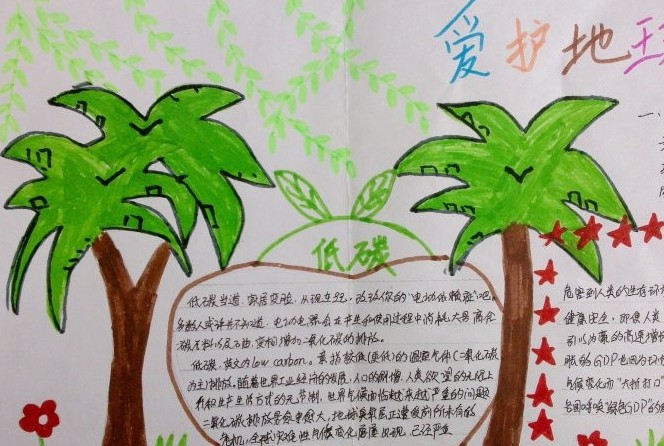 爱护地球
低碳
低碳当道,家居变脸,从现在起,改改你的"电动依赖症"吧。
多数人或许并不知道,电动电器会在生产和使用过程中消耗大量高
碳石料以及油,变相增加二氧化碳的排放。
低碳,英文为low carbon。意指较低(更低)的温室气体(二氧化碳
为主)排放。随着世界工业经济的发展、人口的剧增、人类欲望的无限上
升和生产生活方式的无节制,世界气候面临越来越严重的问题
二氧化碳排放量愈来愈大,地球臭氧层正遭受前所未有的
危机,全球灾难性气候变化屡屡出现,已经严重
一、
危害到人类的生存环
健康安全,即使人类
引以为豪的高速增
眼的GDP也因为环
气候变化而"大打折扣"
各国呼唤"绿色GDP"的